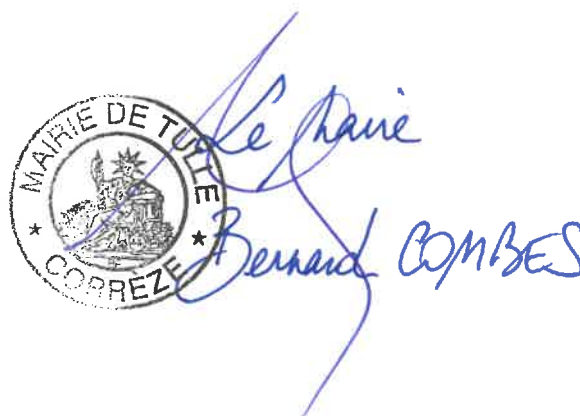 MAIRIE DE TULLE
★ CORRÈZE ★
Le Maire
Bernard COMBES